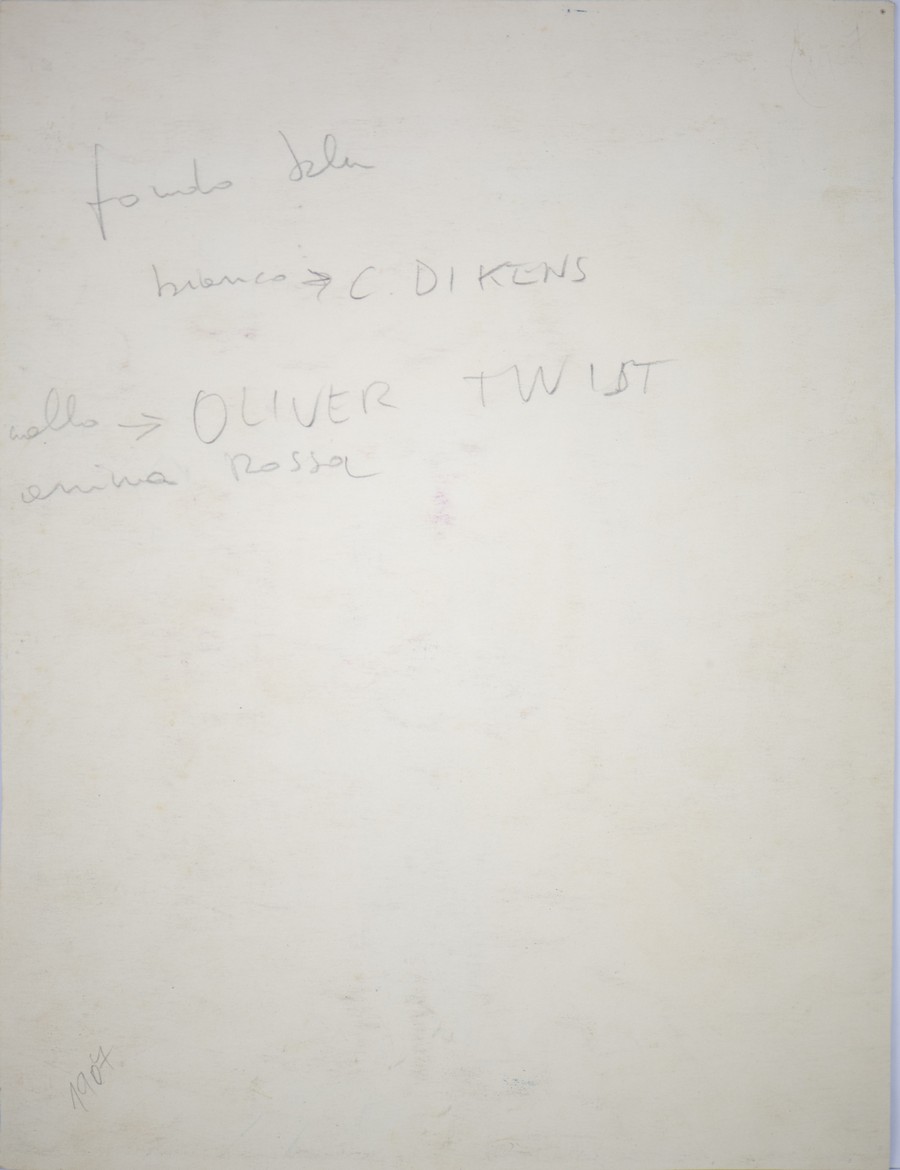 fondo blu
bianco → C. DIKENS
→ OLIVER TWIST
anima Rossa
1907